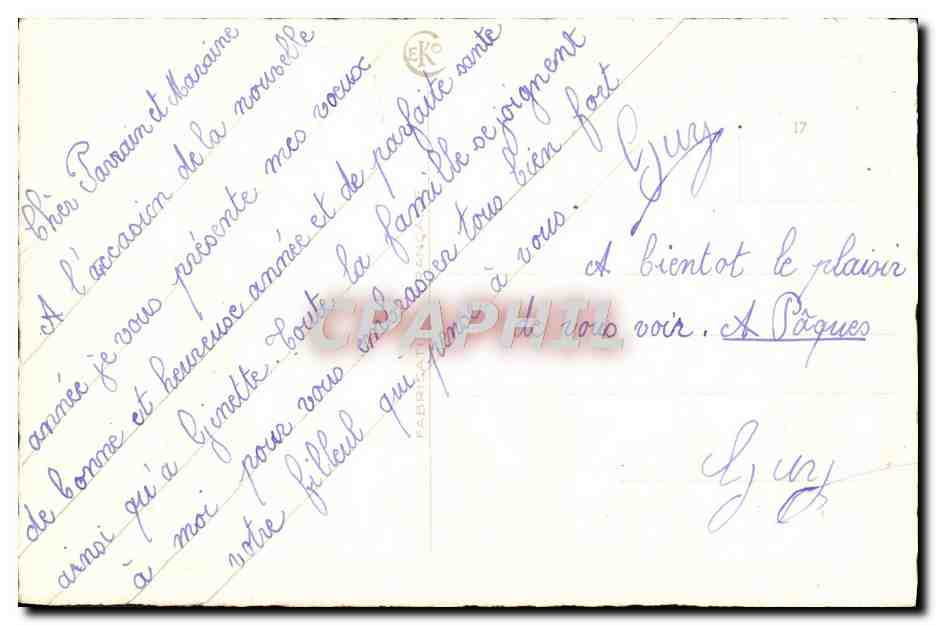 Chèr Parrain et Maraine
A l'occasion de la nouvelle
année je vous présente mes voeux
de bonne et heureuse année et de parfaite santé
ainsi qu'à Ginette. Toute la famille se joignent
à moi pour vous embrasser tous bien fort
votre filleul qui pense à vous.
Guy.
A bientot le plaisir
de vous voir. A Pâques
Guy
CEKO
17
CPAPHIL